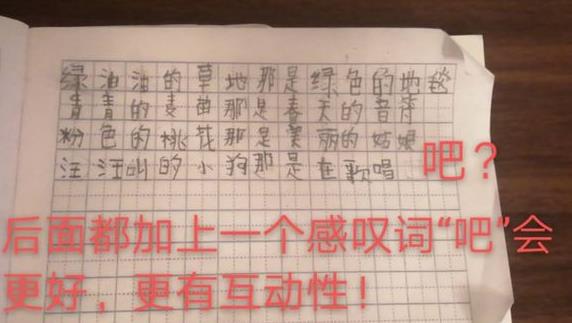 绿油油的草地那是绿色的地毯
青青的麦苗那是春天的音符
粉色的桃花那是美丽的姑娘
汪汪叫的小狗那是在歌唱
吧？
后面都加上一个感叹词“吧”会
更好，更有互动性！